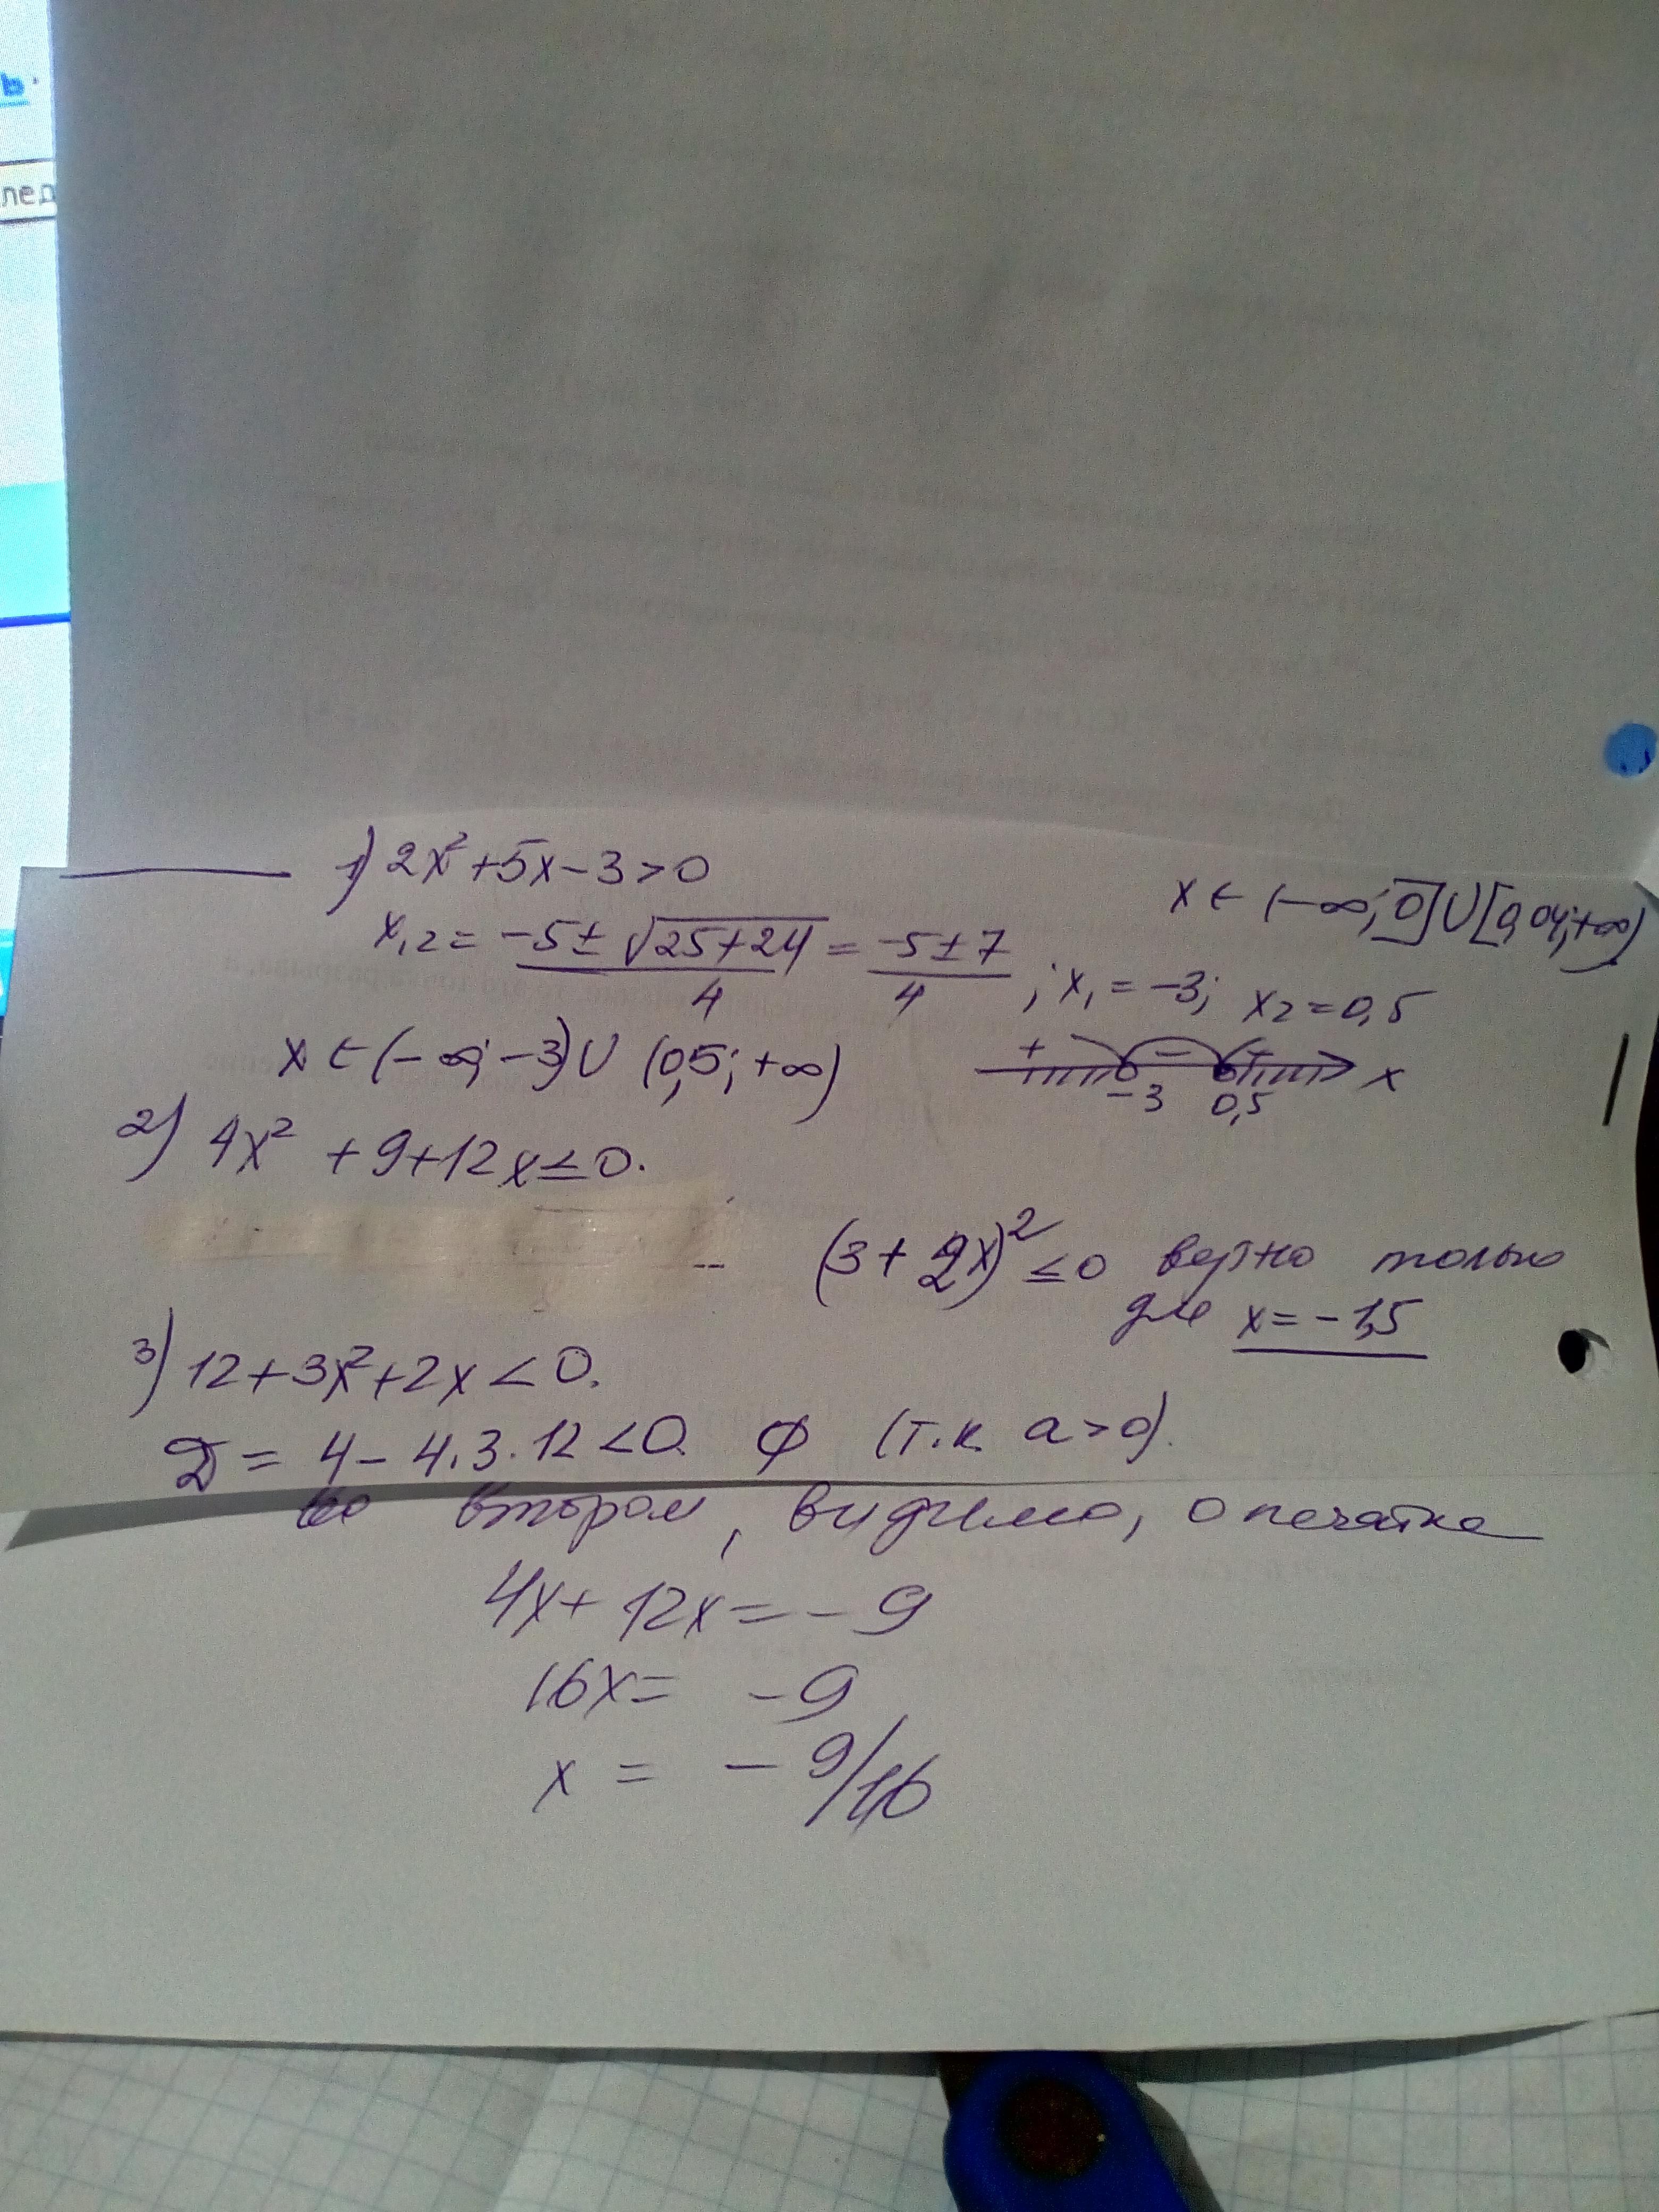 ь.
лед
1) 2x²+5x-3>0
x ∈ (-∞; 0] ∪ [0,04; +∞)
x₁,₂ = (-5±√(25+24))/4 = (-5±7)/4 ; x₁ = -3; x₂ = 0,5
x ∈ (-∞; -3) ∪ (0,5; +∞)
+ - + x
-3 0,5
2) 4x² + 9+12x≤0.
(3+ 2x)² ≤0 верно только
для x = -1,5
3) 12+3x²+2x<0.
D = 4-4·3·12<0. ∅ (т.к. a>0).
во втором, видимо, опечатка
4x+ 12x = -9
16x = -9
x = -9/16